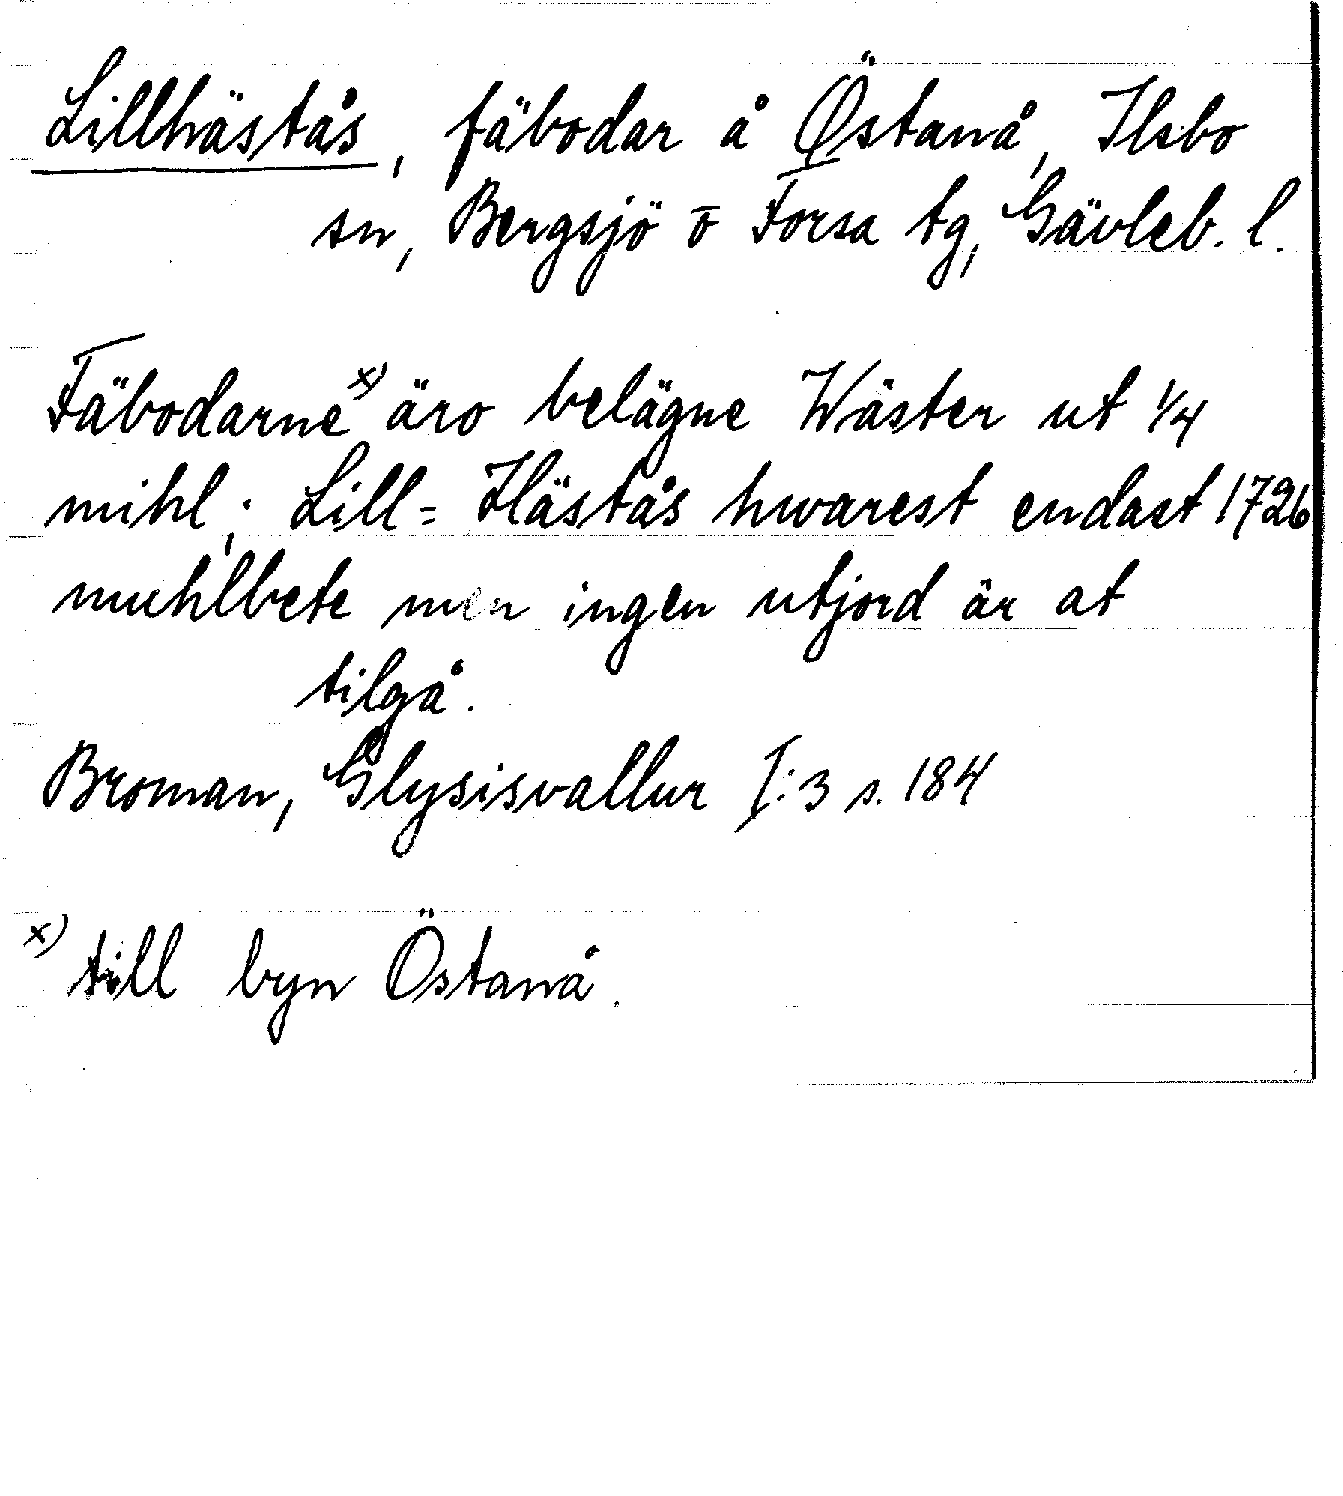 Lillhästås, fäbodar å Östanå, Ilsbo
sn, Bergsjö o Forsa tg, Gävleb. l.
Fäbodarne x) äro belägne Wäster ut 1/4
mihl; Lill= Hästås hwarest endast 1726
muhlbete men ingen utjord är at
tilgå.
Broman, Glysisvallur I:3 s. 184
x) till byn Östanå.